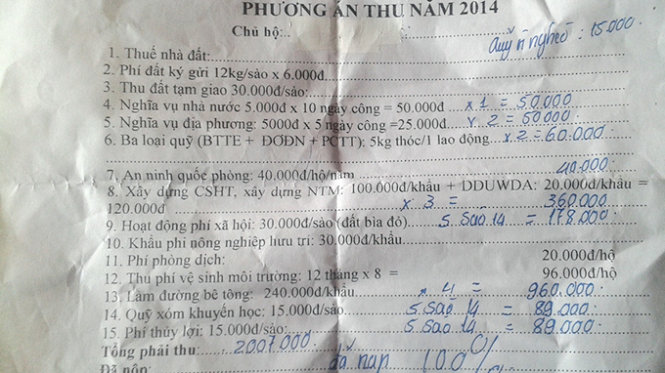 PHƯƠNG ÁN THU NĂM 2014
Chủ hộ:
quỹ n nghèo: 15.000
1. Thuế nhà đất:
2. Phí đất ký gửi 12kg/sào x 6.000đ
3. Thu đất tạm giao 30.000đ/sào:
4. Nghĩa vụ nhà nước 5.000đ x 10 ngày công = 50.000đ x 1 = 50.000
5. Nghĩa vụ địa phương: 5000đ x 5 ngày công =25.000đ x 2 = 50000
6. Ba loại quỹ (BTTE + ĐƠĐN + PCTT): 5kg thóc/1 lao động x 2 = 60.000
7. An ninh quốc phòng: 40.000đ/hộ/năm 40.000
8. Xây dựng CSHT, xây dựng NTM: 100.000đ/khẩu + DDUWDA: 20.000đ/khẩu =
120.000đ x 3 = 360.000
9. Hoạt động phí xã hội: 30.000/sào (đất bìa đỏ) 5 sào 14 = 178.000
10. Khẩu phi nông nghiệp hưu trí: 30.000đ/khẩu
11. Phí phòng dịch: 20.000đ/hộ
12. Thu phí vệ sinh môi trường: 12 tháng x 8 = 96.000đ/hộ
13. Làm đường bê tông: 240.000đ/khẩu x 4 = 960.000
14. Quỹ xóm khuyến học: 15.000đ/sào 5 sào 14 = 89.000
15. Phí thủy lợi: 15.000đ/sào 5 sào 14 = 89.000
Tổng phải thu: 2007.000
Đã nộp: đã nạp 100%